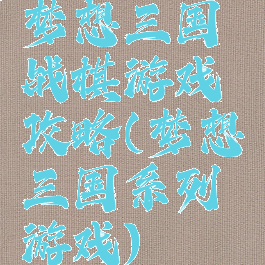 梦想三国
战棋游戏
攻略(梦想
三国系列
游戏)